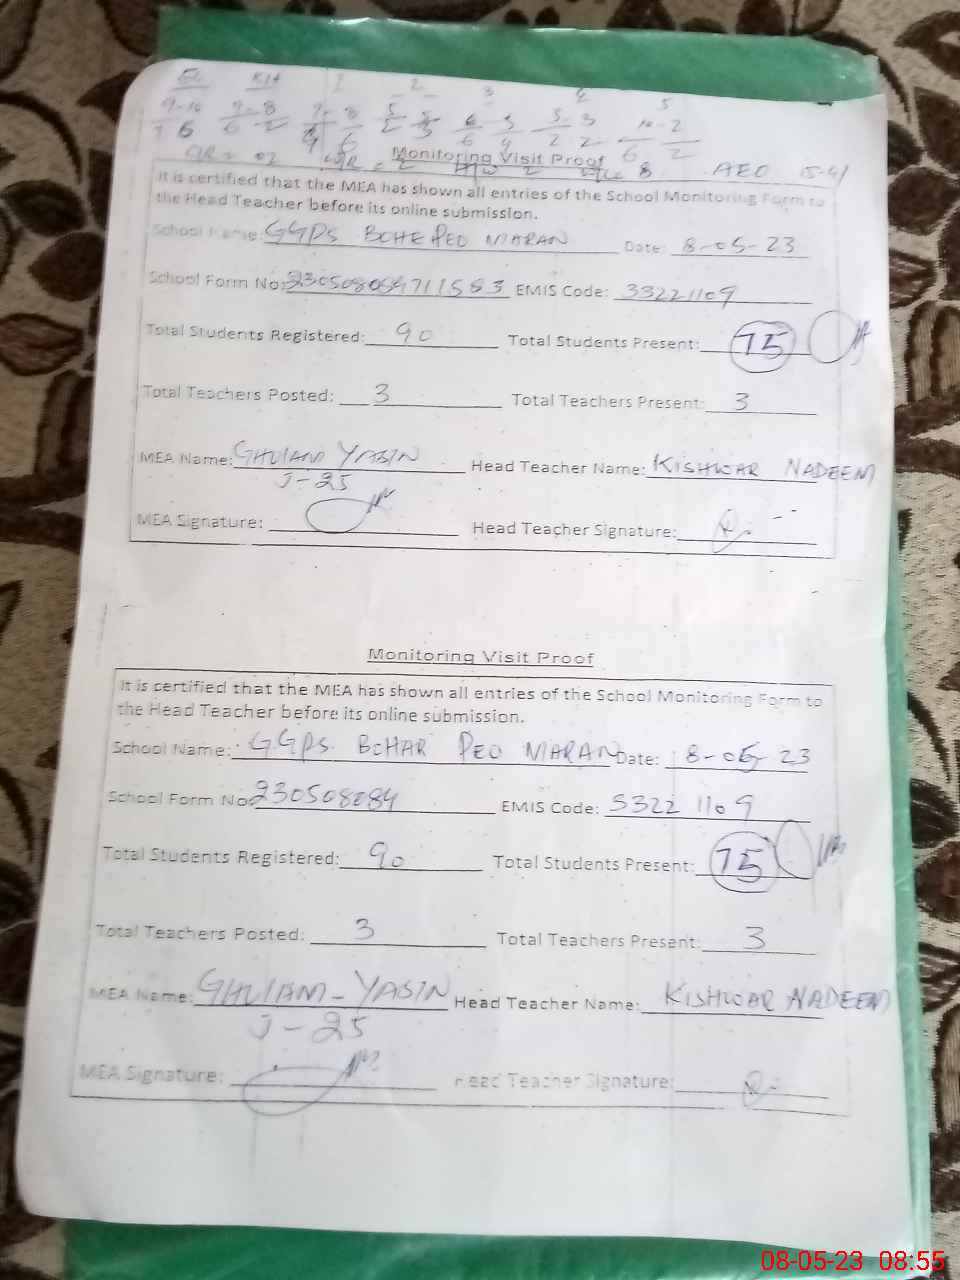 1 2 3 4 5
9-10 9-8 9-8 5-5 6-5 5-3 10-2
Monitoring Visit Proof AEO 15-4
It is certified that the MEA has shown all entries of the School Monitoring Form to
the Head Teacher before its online submission.
School Name: GGPS PEO MARAN Date: 8-05-23
School Form No: EMIS Code: 33221109
Total Students Registered: 90 Total Students Present: 75
Total Teachers Posted: 3 Total Teachers Present: 3
MEA Name: GHULAM YASIN Head Teacher Name: KISHWAR NADEEM
J-25
MEA Signature: Head Teacher Signature:
Monitoring Visit Proof
It is certified that the MEA has shown all entries of the School Monitoring Form to
the Head Teacher before its online submission.
School Name: G.GPS. BCHAR PEO MARAN Date: 8-05-23
School Form No: 230508084 EMIS Code: 33221109
Total Students Registered: 90 Total Students Present: 75
Total Teachers Posted: 3 Total Teachers Present: 3
MEA Name: GHULAM-YASIN Head Teacher Name: KISHWAR NADEEM
J-25
MEA Signature: Head Teacher Signature:
08-05-23 08:55